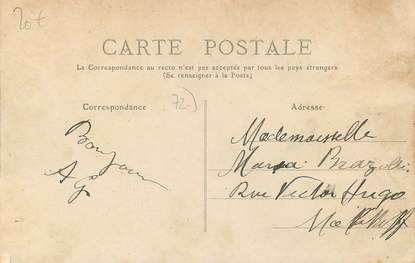 20t
CARTE POSTALE
La Correspondance au recto n'est pas acceptée par tous les pays étrangers
(Se renseigner à la Poste)
Correspondance
72)
Adresse
Bonjour
Mademoiselle
Rue Victor Hugo